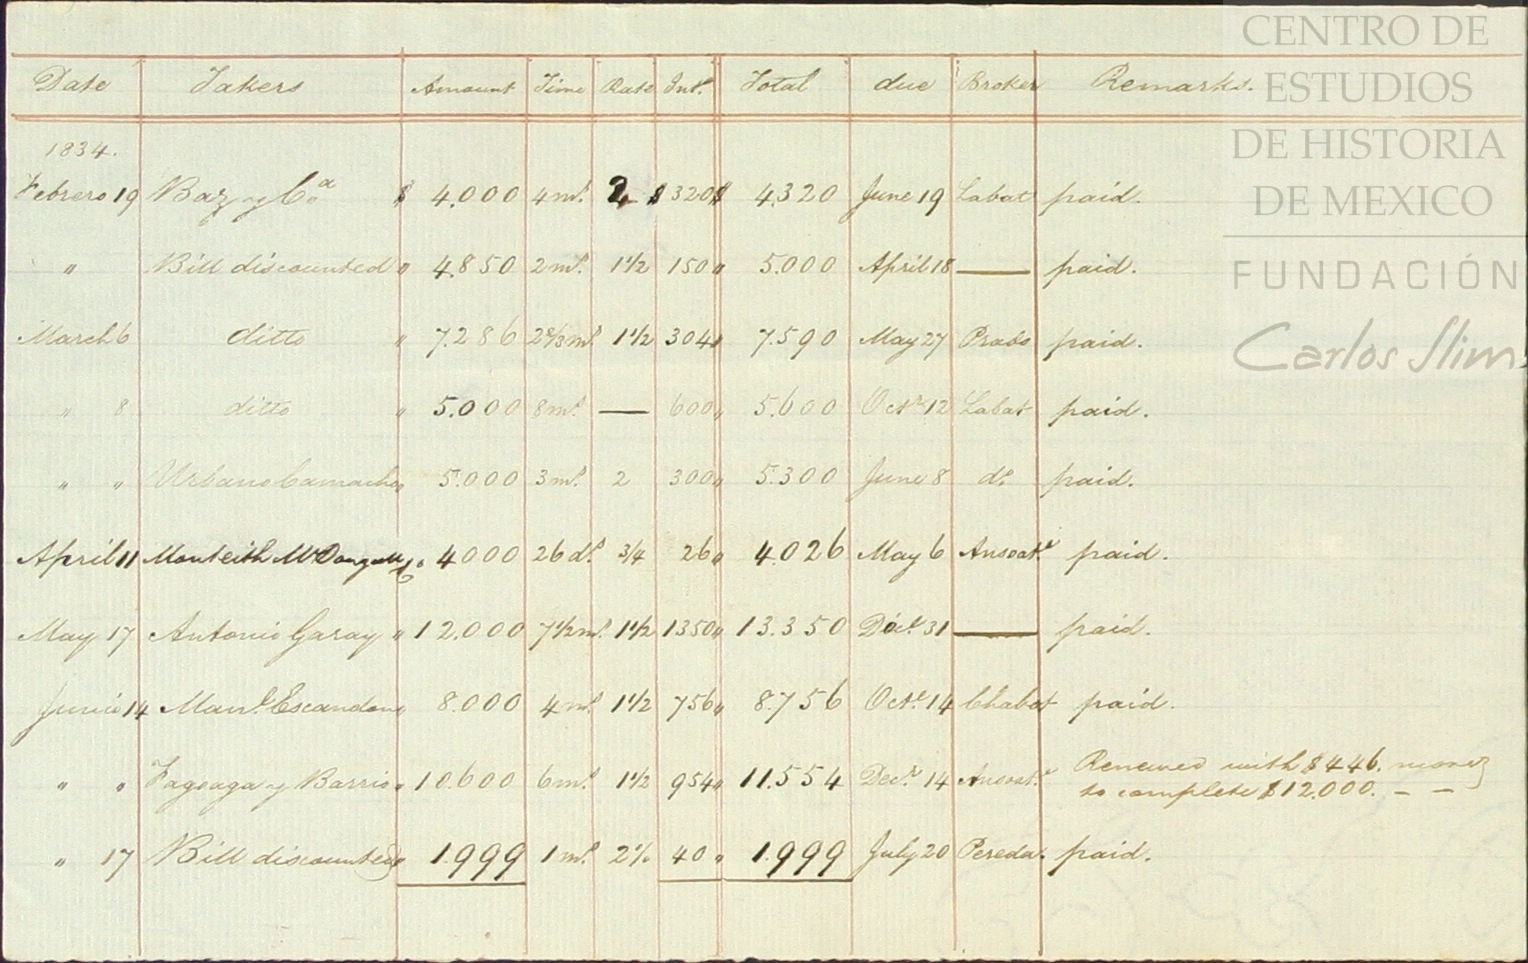 CENTRO DE
ESTUDIOS
DE HISTORIA
DE MEXICO
FUNDACIÓN
Carlos Slim
Date Takers Amount Time Rate Int.t Total due Broker Remarks.
1834.
Febrero 19 Baz y C.a $ 4.000 4 m.s 2 $ 320 $ 4.320 June 19 Labat paid.
" Bill discounted " 4.850 2 m.s 1½ 150 " 5.000 April 18 — paid.
March 6 ditto " 7.286 2⅔ m.s 1½ 304 " 7.590 May 27 Prado paid.
" 8 ditto " 5.000 8 m.s — 600 " 5.600 Oct.r 12 Labat paid.
" " Urbano Camacho " 5.000 3 m.s 2 300 " 5.300 June 8 d.o paid.
April 11 Monteith McDougall " 4.000 26 d.s ¾ 26 " 4.026 May 6 paid.
May 17 Antonio Garay " 12.000 7½ m.s 1½ 1350 " 13.350 31 — paid.
Junio 14 Man.l Escandon " 8.000 4 m.s 1½ 756 " 8.756 Oct.r 14 Chabot paid.
" " Fagoaga y Barrio " 10.600 6 m.s 1½ 954 " 11.554 Dec.r 14 Renewed with $446. money
to complete $12.000. – –
" 17 Bill discounted " 1.999 1 m.s 2% 40 " 1.999 July 20 Pereda. paid.